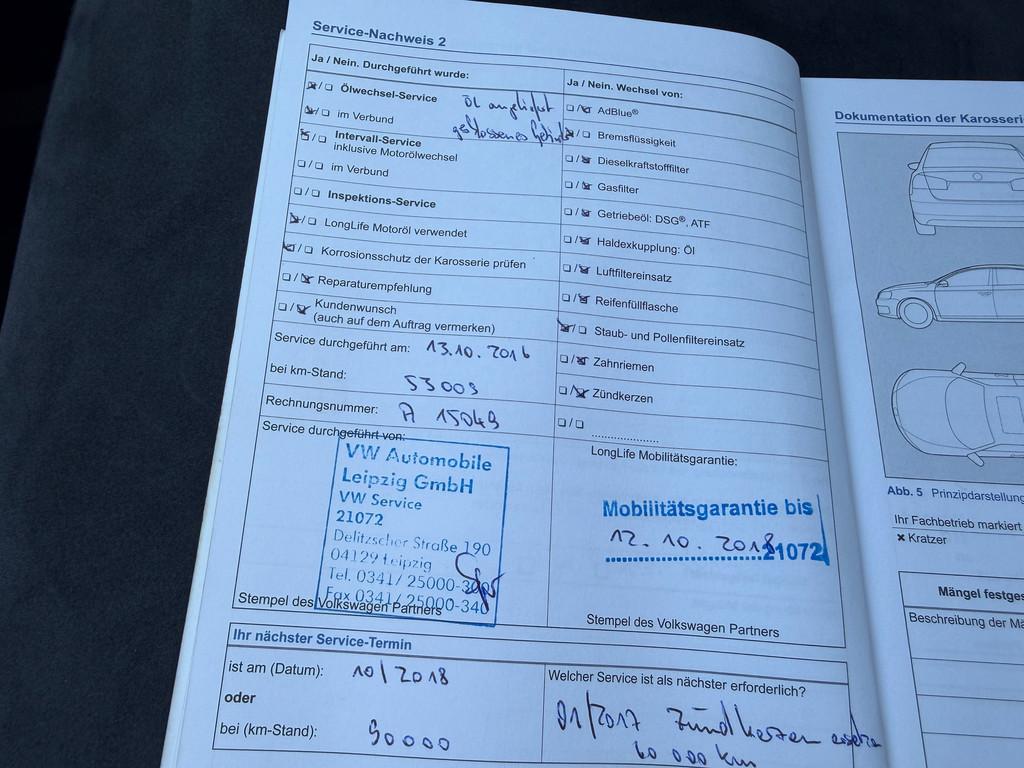 Service-Nachweis 2
Ja / Nein. Durchgeführt wurde:
Ölwechsel-Service
Öl angeliefert
im Verbund
Intervall-Service
inklusive Motorölwechsel
im Verbund
Inspektions-Service
LongLife Motoröl verwendet
Korrosionsschutz der Karosserie prüfen
Reparaturempfehlung
Kundenwunsch
(auch auf dem Auftrag vermerken)
Service durchgeführt am: 13.10.2016
bei km-Stand: 53003
Rechnungsnummer: A 15049
Service durchgeführt von:
VW Automobile
Leipzig GmbH
VW Service
21072
Delitzscher Straße 190
04129 Leipzig
Tel. 0341/ 25000-300
Fax 0341/ 25000-340
Stempel des Volkswagen Partners
Ja / Nein. Wechsel von:
AdBlue®
Bremsflüssigkeit
Dieselkraftstofffilter
Gasfilter
Getriebeöl: DSG®, ATF
Haldexkupplung: Öl
Luftfiltereinsatz
Reifenfüllflasche
Staub- und Pollenfiltereinsatz
Zahnriemen
Zündkerzen
LongLife Mobilitätsgarantie:
Mobilitätsgarantie bis
12.10.2018
21072
Stempel des Volkswagen Partners
Ihr nächster Service-Termin
ist am (Datum): 10/2018
oder
bei (km-Stand): 90000
Welcher Service ist als nächster erforderlich?
01/2017 Zündkerzen ersetzen
60 000 km
Dokumentation der Karosserie
Abb. 5 Prinzipdarstellung
Ihr Fachbetrieb markiert
× Kratzer
Mängel festges
Beschreibung der Mä